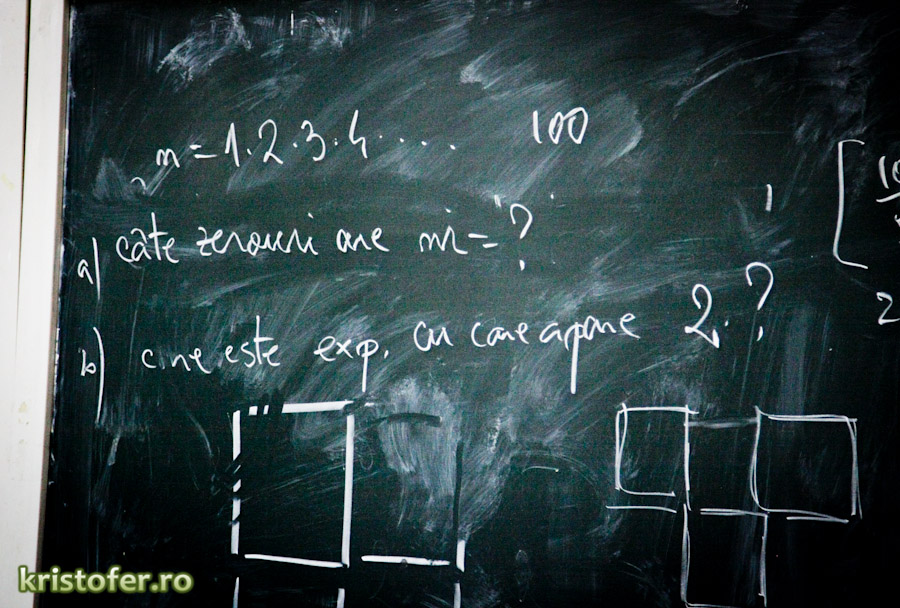 n = 1·2·3·4 .... 100
a) câte zerouri are n = ?
b) cine este exp. cu care apare 2. ?
[ 10
2
kristofer.ro